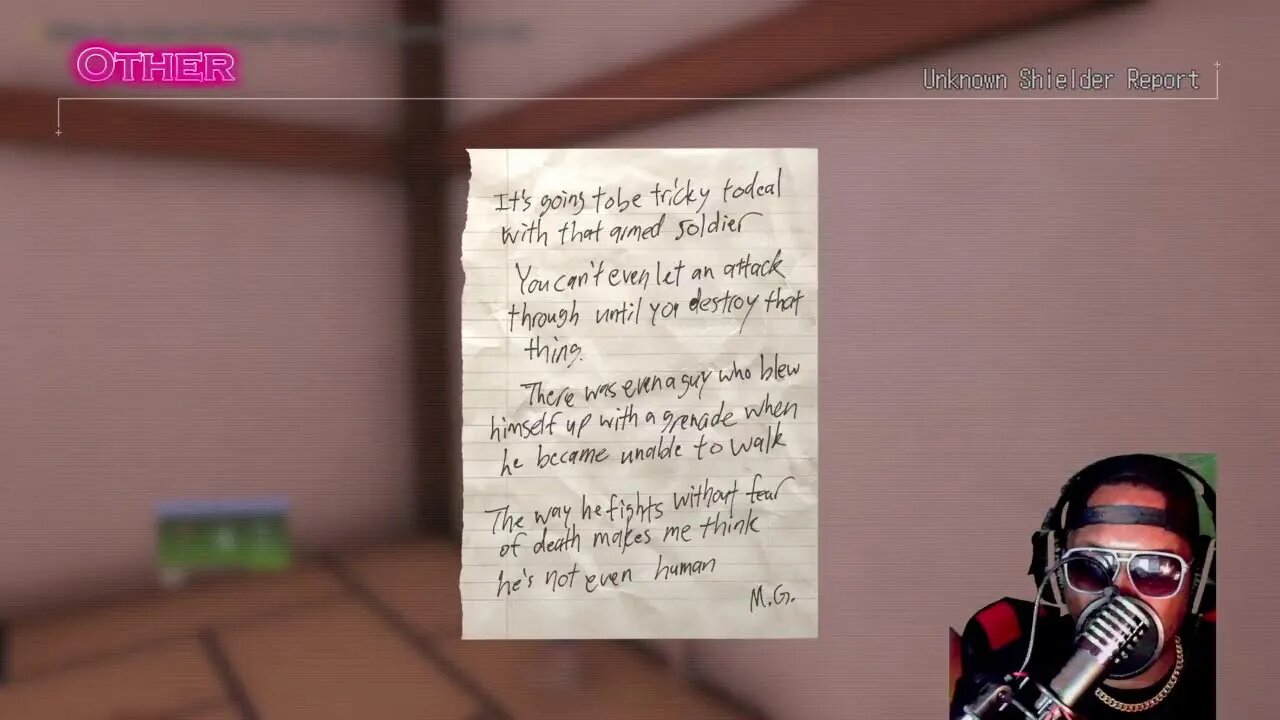 OTHER
Unknown Shielder Report
It's going tobe tricky todeal
with that armed soldier
You can't even let an attack
through until you destroy that
thing.
There was even a guy who blew
himself up with a grenade when
he became unable to walk
The way he fights without fear
of death makes me think
he's not even human
M.G.